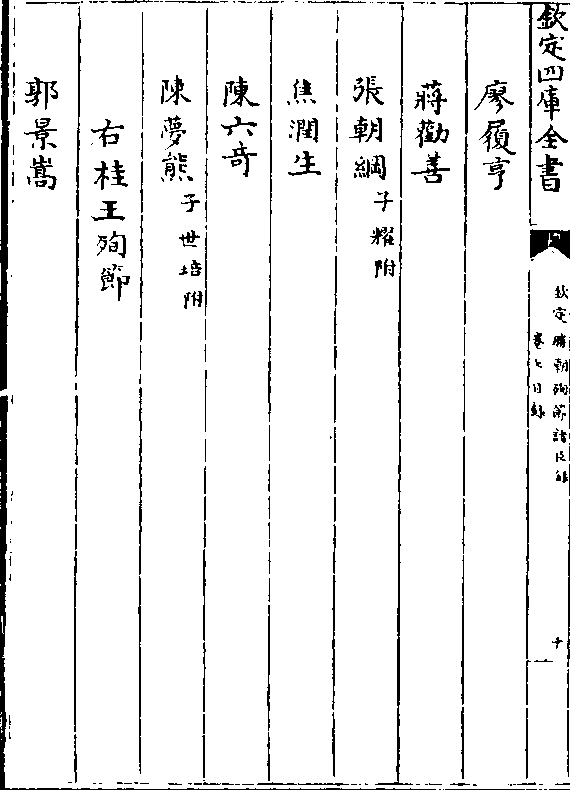 欽定四庫全書
欽定勝朝殉節諸臣録
卷七目録
十
廖履亨
蔣勸善
張朝綱子耀附
焦潤生
陳六奇
陳夢熊子世培附
右桂王殉節
郭景嵩